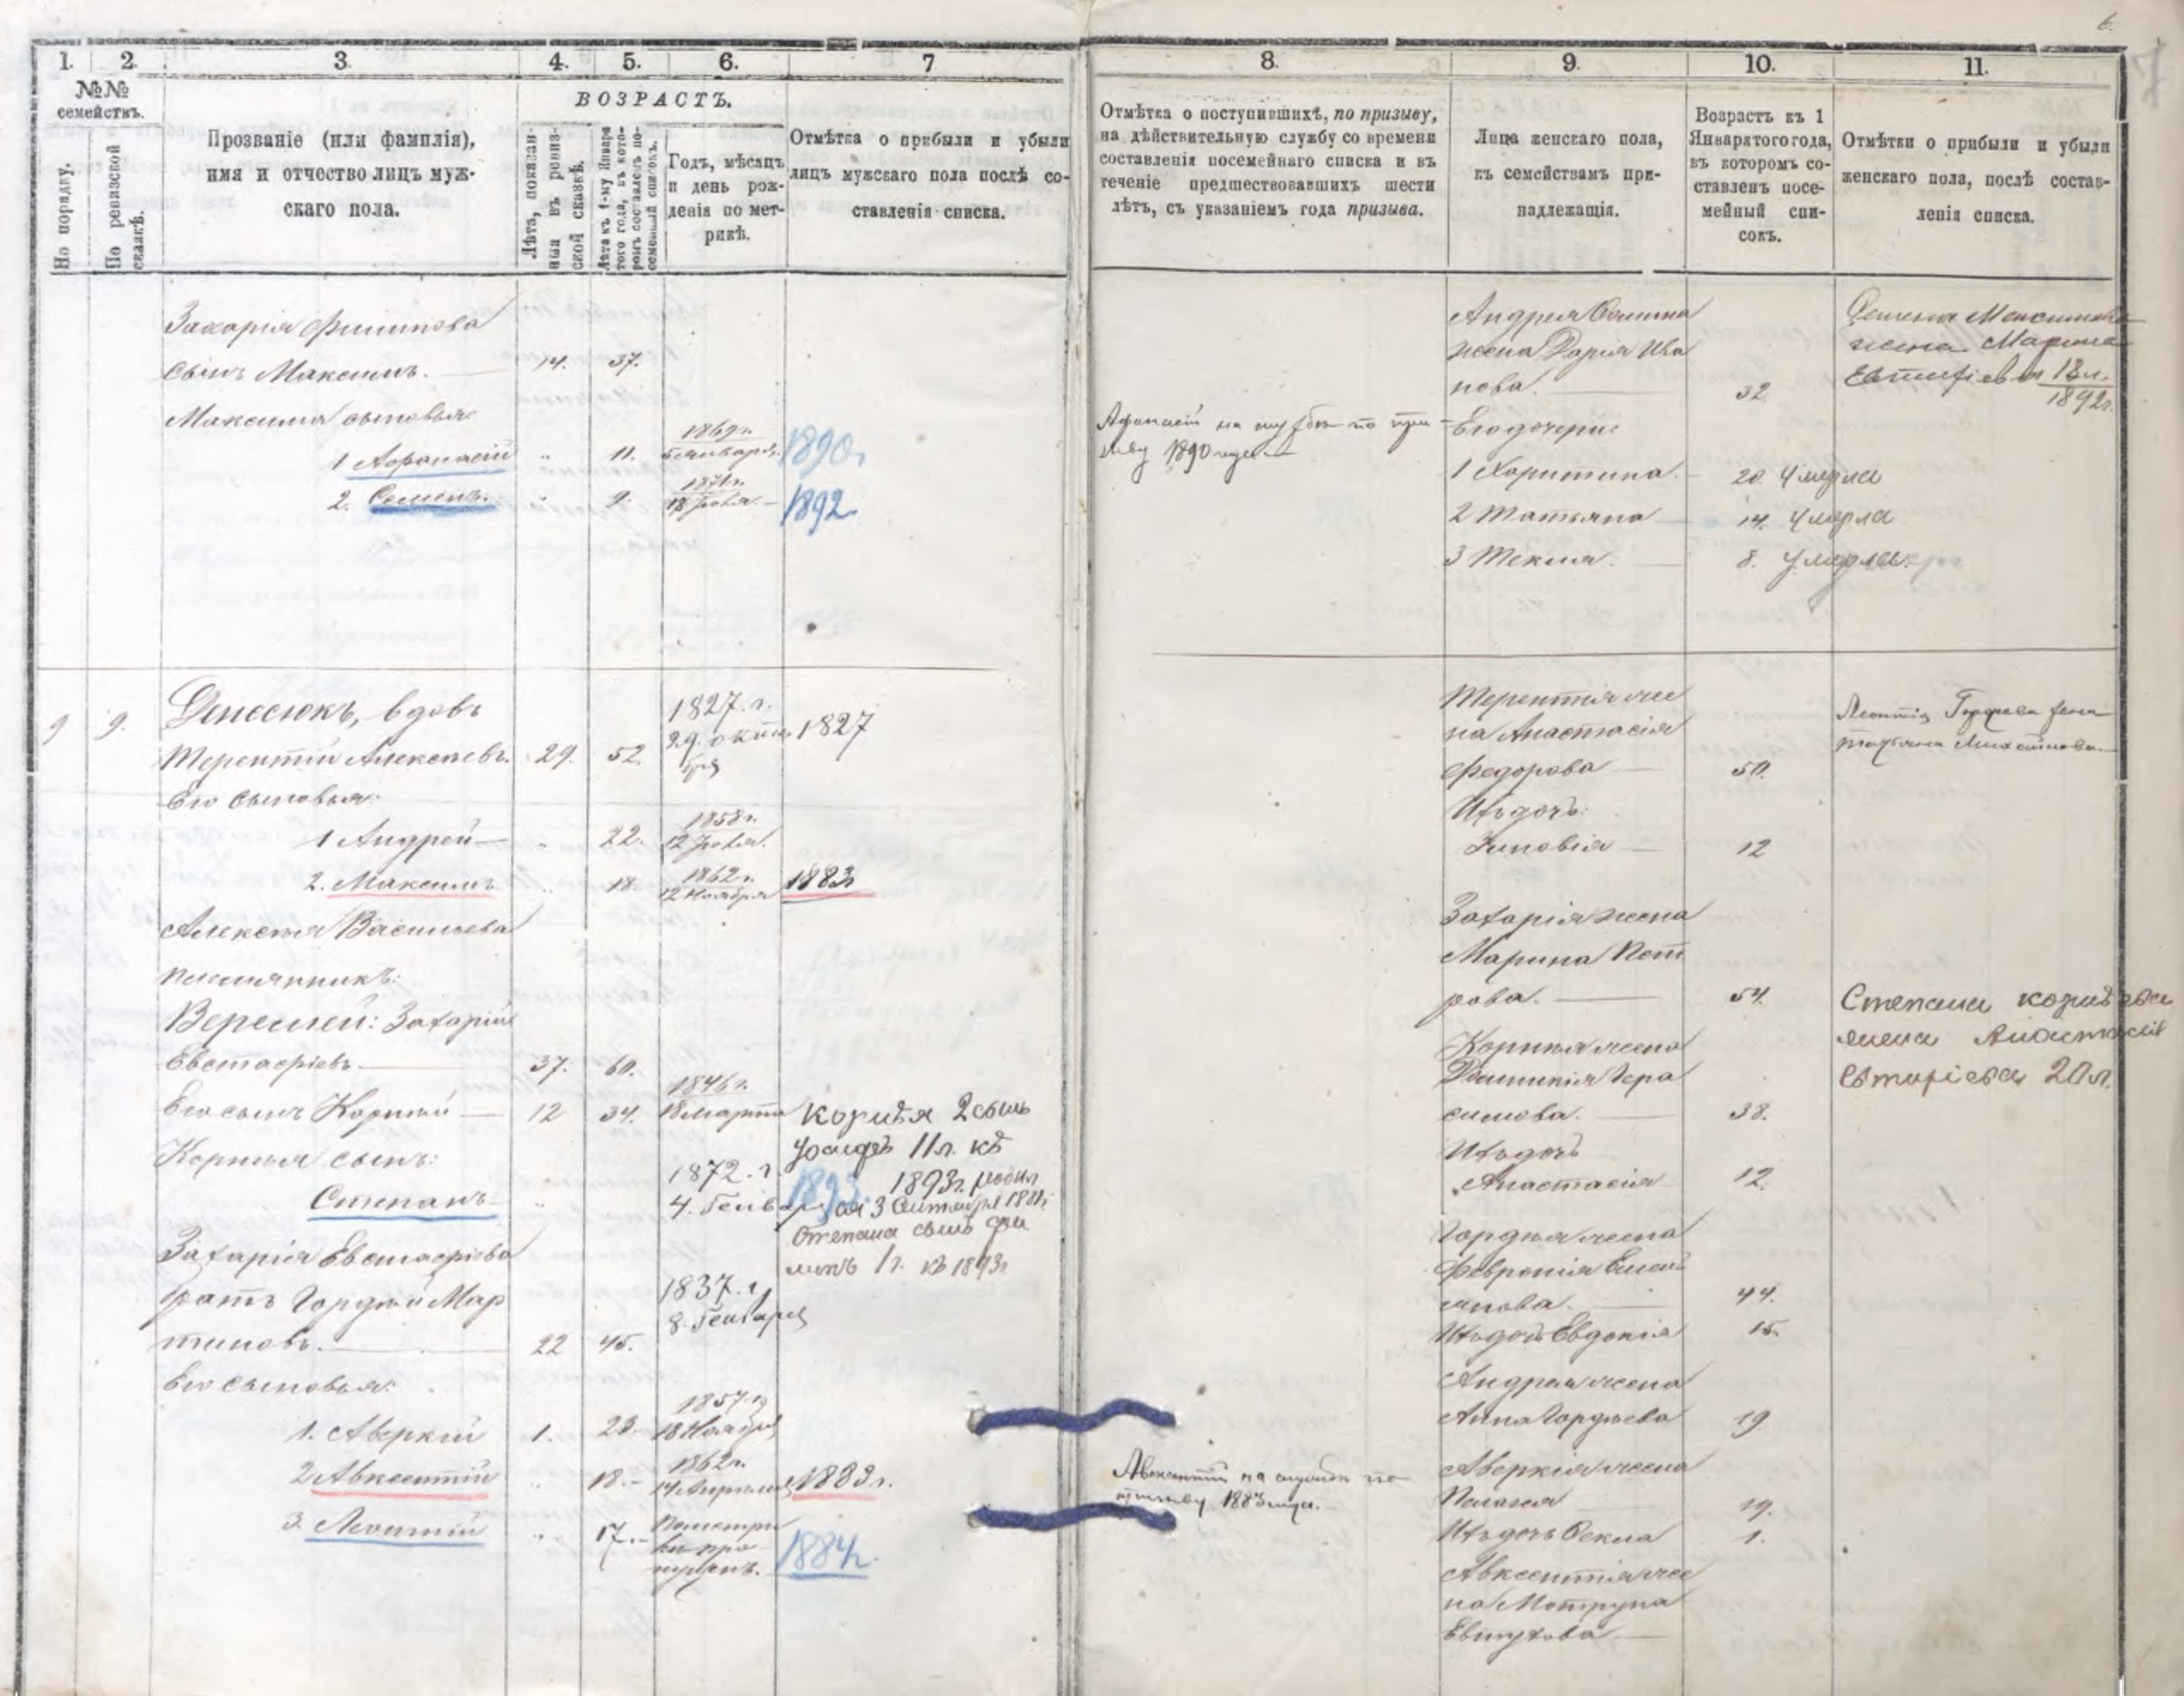 6.
1. 2. 3. 4. 5. 6. 7
№№ семействъ.
По порядку.
По ревизской сказкѣ.
Прозваніе (или фамилія),
имя и отчество лицъ муж-
скаго пола.
ВОЗРАСТЪ.
Лѣта, показан-
ныя въ ревиз-
ской сказкѣ.
Лѣта къ 1-му Января
того года, въ кото-
ромъ составленъ по-
семейный списокъ.
Годъ, мѣсяцъ
и день рож-
денія по мет-
рикѣ.
Отмѣтка о прибыли и убыли
лицъ мужскаго пола послѣ со-
ставленія списка.
Захарія Филипова
сынъ Максимъ. 14. 37.
Максима сыновья:
1 Афанасій " 11. 1869г. 1890
2. Семенъ. " 9. 1871г. 18 1892.
9 9. Денесюкъ, вдовъ
Терентій Алексѣевъ. 29. 52. 1827.г. 29. октября 1827
Его сыновья:
1 Андрей " 22. 1858г. 12
2. Максимъ " 18. 1862г. 12 Ноября 1883
Алексѣя Васильева
племянникъ:
Веремей: Захарій
Евстафіевъ 37. 60.
Его сынъ Корнѣй 12 34. 1846г. 18 Марта
Корнѣя 2 сынъ
11л. къ
1893г.
Корнѣя сынъ:
Степанъ " 1872.г. 4. Генваря 1893.
3
Степана сынъ
1г. къ 1893г
Захарія Евстафіева
братъ Гордѣй Мар
тиновъ. 22 45. 1837.г. 8. Генваря
Его сыновья:
1. Аверкій 1. 23. 1857.г 18 Ноября
2 Авксентій " 18. 1862г. 14 Апрѣля 1883г.
3. Леонтій " 17. 1884г.
8. 9. 10. 11.
Отмѣтка о поступившихъ, по призыву,
на дѣйствительную службу со времени
составленія посемейнаго списка и въ
теченіе предшествовавшихъ шести
лѣтъ, съ указаніемъ года призыва.
Лица женскаго пола,
къ семействамъ при-
надлежащія.
Возрастъ къ 1
Января того года,
въ которомъ со-
ставленъ посе-
мейный спи-
сокъ.
Отмѣтки о прибыли и убыли
женскаго пола, послѣ состав-
ленія списка.
Андрея
жена Дарія Ива
нова. 32
Семена Максимова
жена Марина
18л.
1892г.
Афанасій на службѣ по при
зыву 1890 года.
Его дочери:
1 Харитина. 20. Умерла
2 Татьяна 14. Умерла
3 Текля. 8. Умерла.
Терентія же
на Анастасія
Федорова 50.
Леонтія Гордѣева жена
Татьяна
Ихъ дочь:
Зиновія 12
Захарія жена
Марина Пет
рова. 54.
Степана Корнѣева
жена Анастасія
20л.
Корнѣя жена
Гера
симова. 38.
Ихъ дочь
Анастасія 12.
Гордѣя жена
Февронія Емель
янова. 44.
Ихъ дочь Евдокія 15.
Андрея жена
Анна Гордѣева 19
Авксентій на службѣ по
призыву 1883 года.
Аверкія жена
Пелагея 19.
Ихъ дочь Фекла 1.
Авксентія же
на Мотруна